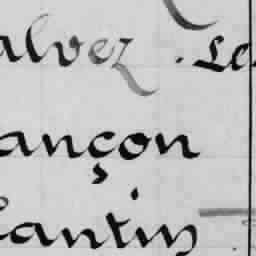 alvez. Le
ançon
antin